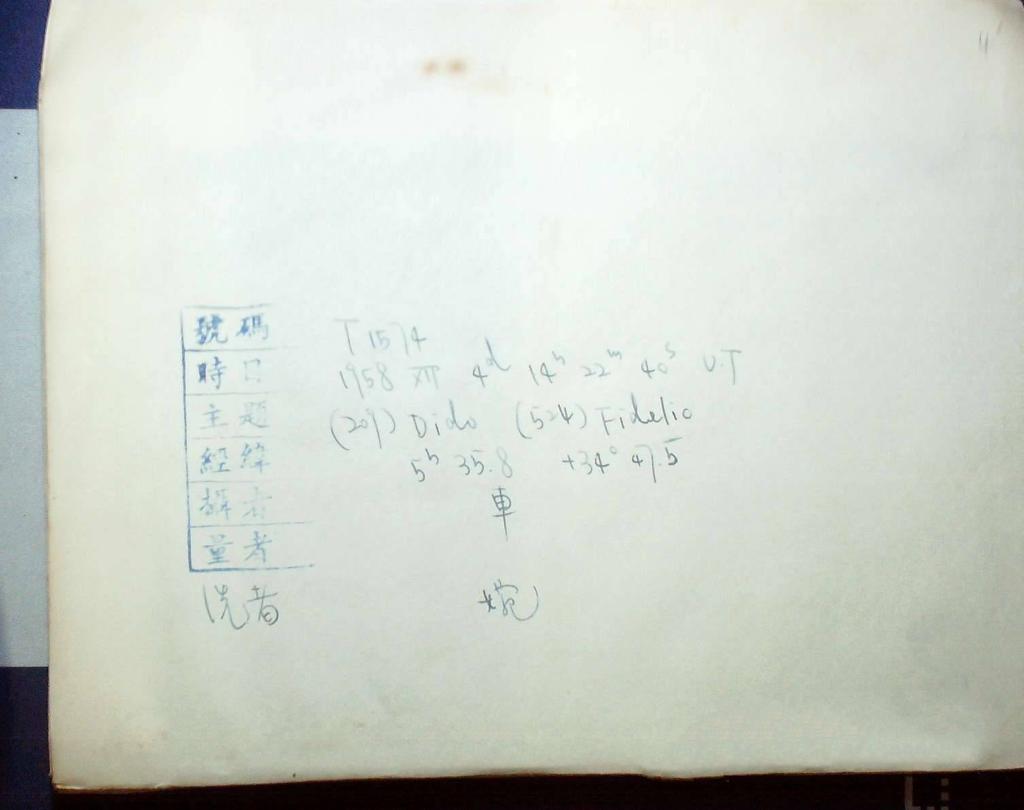 號碼 T 1574
時日 1958 XII 4d 14h 22m 40s U.T
主題 (209) Dido (524) Fidelio
經緯 5h 35.8 +34° 47.5
攝者 車
量者
洗者 婉